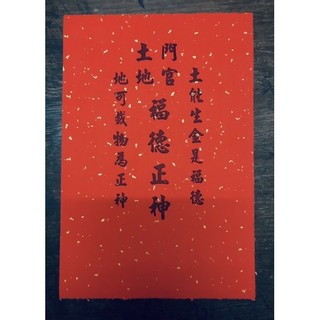 土能生金是福德
門官
土地
福德正神
地可載物為正神